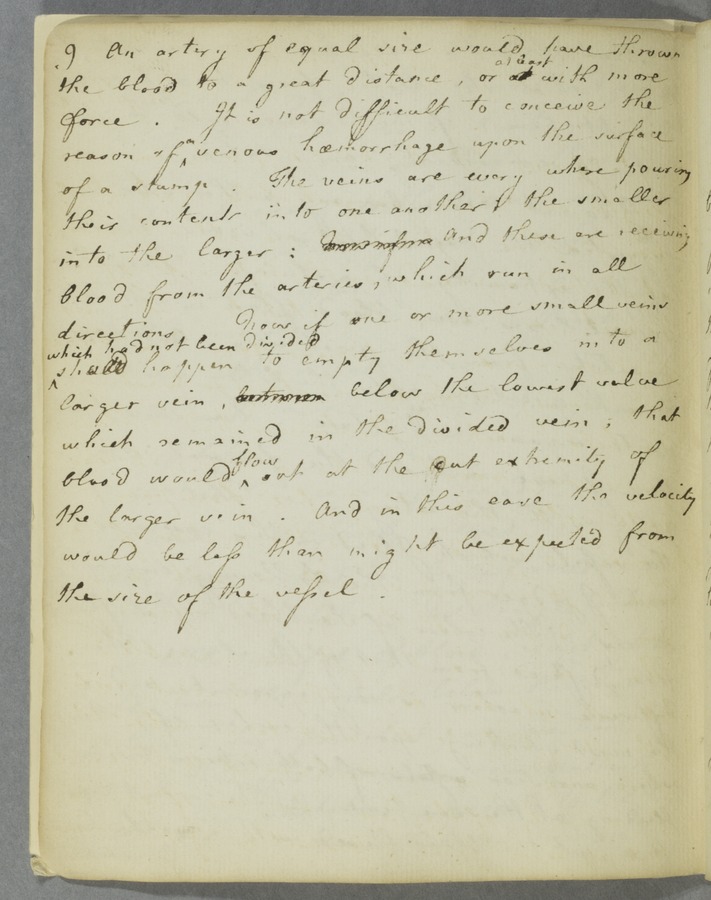 9 An artery of equal size would have thrown
the blood to a great distance, or at least with more
force. It is not difficult to conceive the
reason of a venous hæmorrhage upon the surface
of a stump. The veins are every where pouring
their contents into one another; the smaller
into the larger: And these are receiving
blood from the arteries, which run in all
directions. Now if one or more small veins
which had not been divided
should happen to empty themselves into a
larger vein, below the lowest valve
which remained in the divided vein; that
blood would flow out at the cut extremity of
the larger vein. And in this case the velocity
would be less than might be expected from
the size of the vessel.